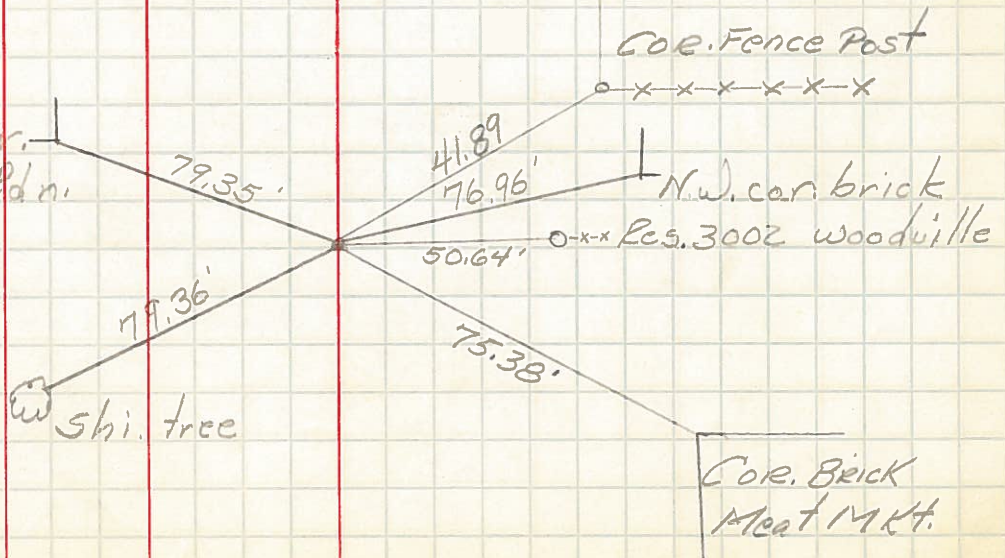 Cor. Fence Post
41.89
79.35'
76.96'
N.W. cor. brick
Res. 3002 Woodville
50.64'
79.36'
75.38'
Shi. tree
Cor. Brick
Meat Mkt.